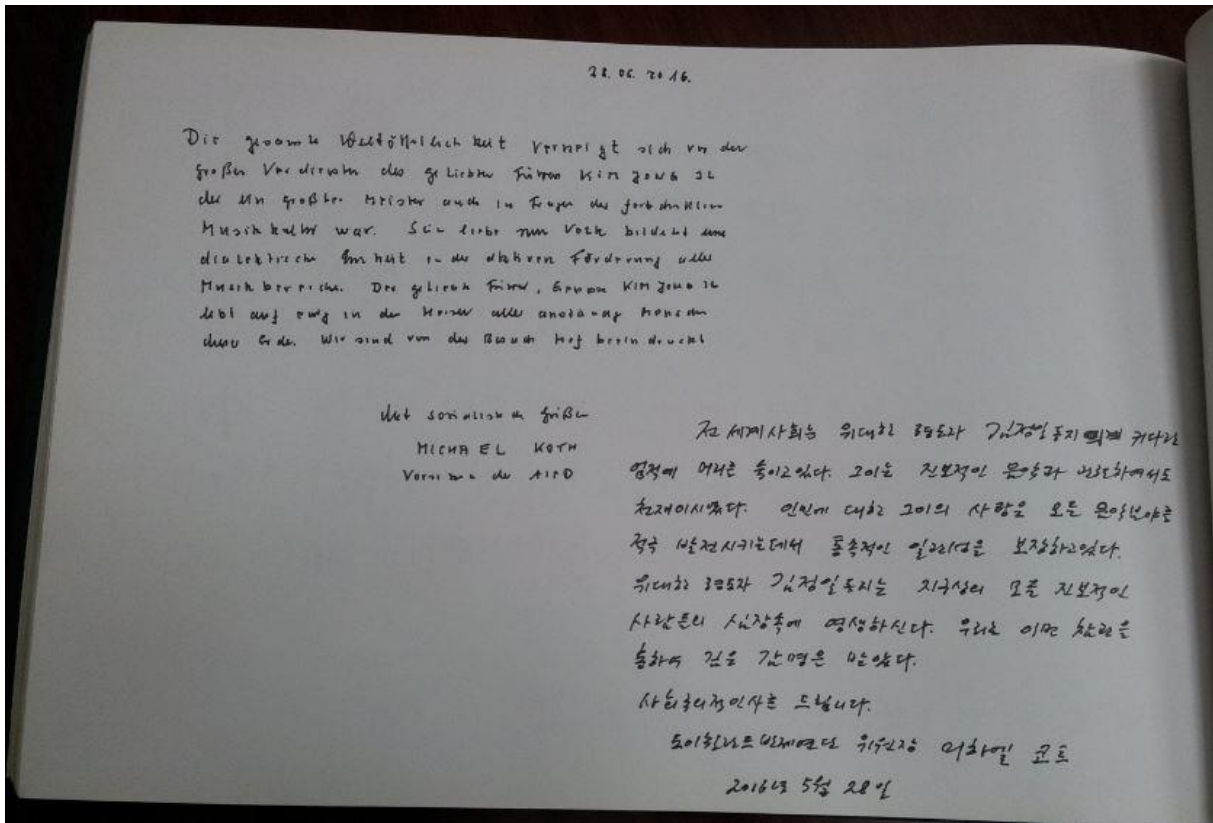 28.05.2016.
Die gesamte Weltöffentlichkeit verneigt sich vor den
großen Verdiensten des geliebten Führers KIM JONG IL
der ein großer Meister auch in Fragen der fortschrittlichen
Musikkultur war. Seine Liebe zum Volk bildete eine
dialektische Einheit in der aktiven Förderung aller
Musikbereiche. Der geliebte Führer, Genosse KIM JONG IL
lebt auf ewig in den Herzen aller anständigen Menschen
dieser Erde. Wir sind von dem Besuch tief beeindruckt
Mit sozialistischen Grüßen
MICHAEL KOTH
Vorsitzender der AIPD
전세계사회는 위대한 령도자 김정일동지의 커다란
업적에 머리를 숙이고있다. 그이는 진보적인 음악과 관련하여서도
천재이시였다. 인민에 대한 그이의 사랑은 모든 음악분야를
적극 발전시키는데서 통속적인 일관성을 보장하고있다.
위대한 령도자 김정일동지는 지구상의 모든 진보적인
사람들의 심장속에 영생하신다. 우리는 이번 참관을
통하여 깊은 감명을 받았다.
사회주의적인사를 드립니다.
도이췰란드반제연단 위원장 미하엘 코트
2016년 5월 28일